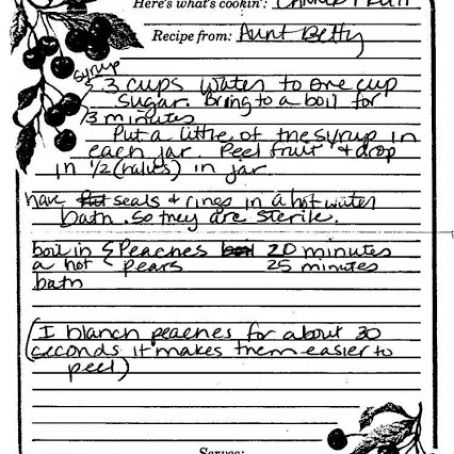 Here's what's cookin': Canned Fruit
Recipe from: Aunt Betty
Syrup
{ 3 cups water to one cup
sugar. Bring to a boil for
3 minutes
Put a little of the syrup in
each jar. Peel fruit & drop
in 1/2 (halves) in jar.
have put seals & rings in a hot water
bath. So they are sterile.
boil in { Peaches boil 20 minutes
a hot { Pears 25 minutes
bath
(I blanch peaches for about 30
seconds it makes them easier to
peel)
Serves: